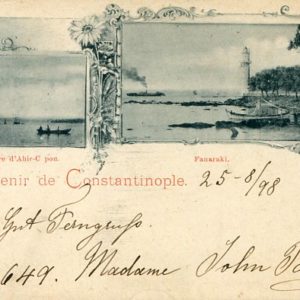 re d'Ahir-C pou. Fanaraki.
enir de Constantinople. 25-8/98
Gut Ferngruss.
649. Madame John